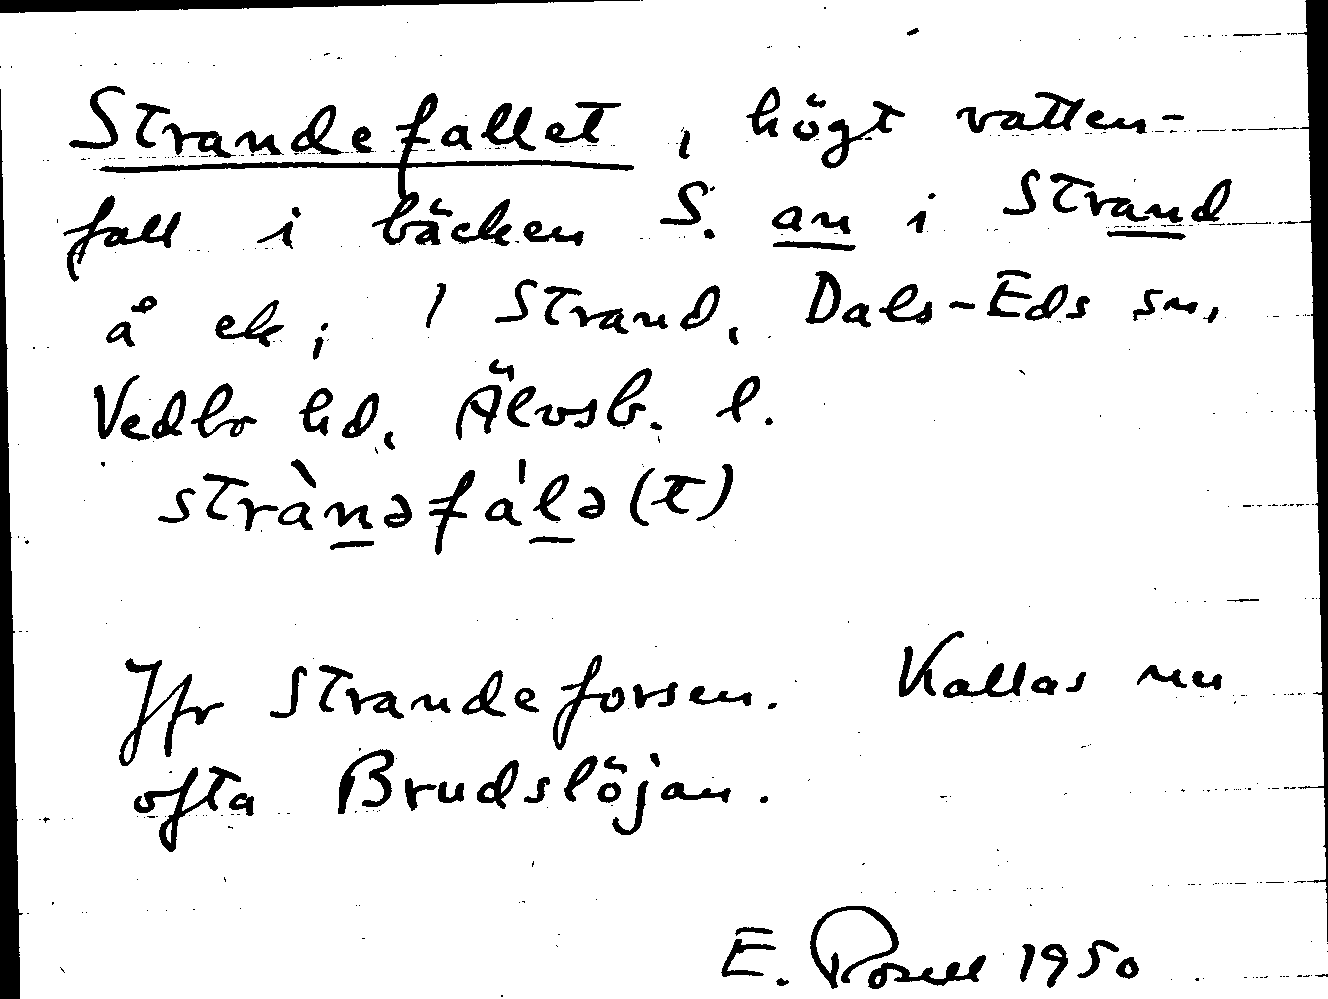 Strandefallet, högt vatten-
fall i bäcken S. an i Strand
å ek; 1 Strand, Dals-Eds sn,
Vedbo hd, Älvsb. l.
strànəfàlə(t)
Jfr Strandeforsen. Kallas nu
ofta Brudslöjan.
E. Rosell 1950